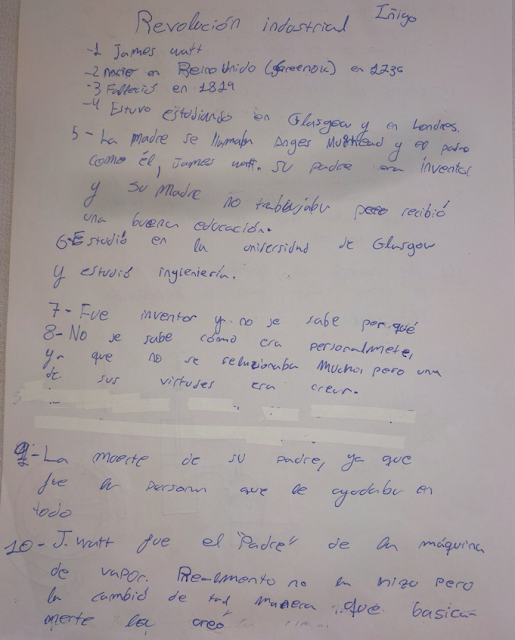 Revolución industrial Iñigo
-1 James watt
-2 nació en Reino Unido (Greenok) en 1736
-3 Falleció en 1819
-4 Estuvo estudiando en Glasgow y en Londres.
5- La madre se llamaba Anges Muirhead y el padre
como él, James watt. su padre era inventor
y su madre no trabajaba pero recibió
una buena educación.
6-Estudió en la universidad de Glasgow
y estudió ingieniería.
7- Fue inventor y no se sabe por qué
8- No se sabe cómo era personalmete,
ya que no se relacionaba mucho, pero una
de sus virtudes era crear.
9-La muerte de su padre, ya que
fue la persona que le ayudaba en
todo
10- J. Watt fue el "Padre" de la máquina
de vapor. Realmento no la hizo pero
la cambió de tal manera que basica-
mente la creó